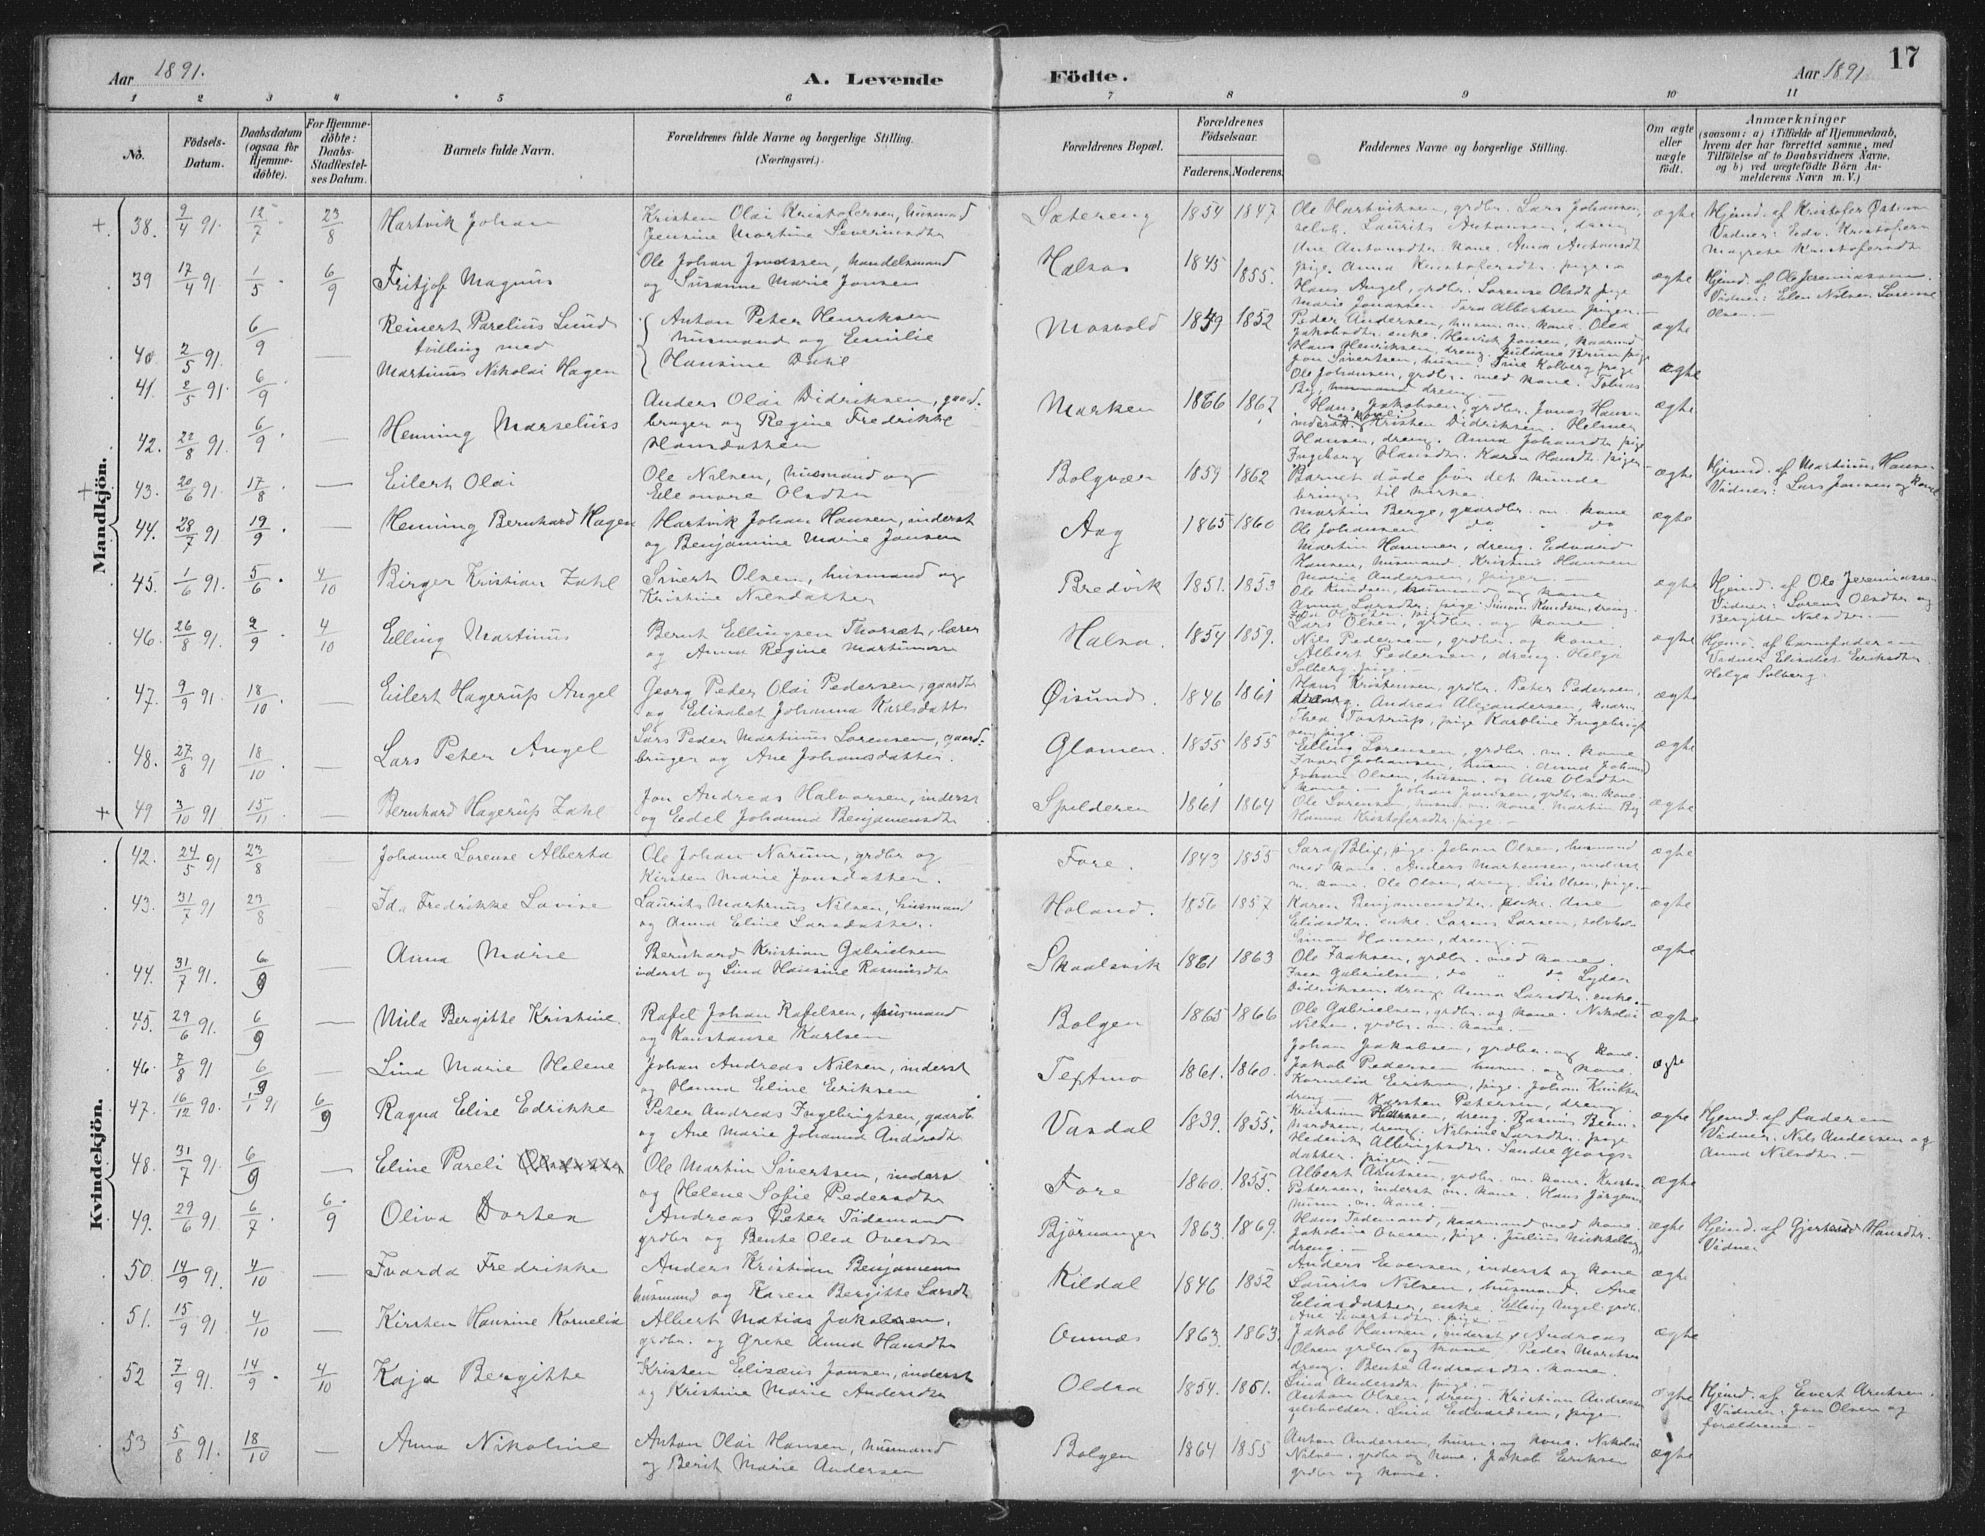 Aar 1891.
A. Levende Födte.
Aar 1891
17
1 2 3 4 5 6 7 8 9 10 11
No.
Födsels-Datum.
Daabsdatum (ogsaa for Hjemme-döbte).
For Hjemme-döbte: Daabs-Stadfæstel-ses Datum.
Barnets fulde Navn.
Forældrenes fulde Navne og borgerlige Stilling. (Næringsvei.)
Forældrenes Bopæl.
Forældrenes Födselsaar.
Faderens. Moderens.
Faddernes Navne og borgerlige Stilling.
Om ægte eller uægte födt.
Anmærkninger
(saasom: a) i Tilfælde af Hjemmedaab, hvem der har forrettet samme, med Tilföielse af to Daabsvidners Navne, og b) ved uægtefödte Börn An-melderens Navn m. V.)
Mandkjön.
+ 38. 9/4 91. 12/7 23/8 Hartvik Johan
Kristen Olai Kristofersen, husmand
Jensine Martine Severinsdtr
Sætereng 1854 1847
Ole Hartviksen, grdbr. Lars Johansen,
selvb. Laurits Antonsen, dreng
Ane Antonsdtr kone. Anna Antonsdtr
pige. Anna Kristofersdtr pige
ægte
Hjemd. af Kristofer
Vidner: Edv. Kristofersen
Magrete Kristofersdtr
39 17/4 91 1/5 6/9 Fritjof Magnus
Ole Johan Jonassen, handelsmand
og Susanne Marie Jonsen
Halsos 1845 1855.
Hans Angel, grdbr. Lorense Olsdt pige
Marie Jonassen
ægte
Hjemd. af Ole Jeremiassen.
Vidner: Elen Nilsen Lorense
Olsen.
40. 2/5 91. 6/9 — Reinert Parelius Lund
tvilling med
Anton Peter Henriksen
husmand og Emilie
Hansine Dahl
Mosvold 1849 1852
Peder Andersen, husm. m. kone. Olea
Jakobsdtr. enke. Henrik Jonsen, kaarmd
Hans Henriksen, dreng. Juliane Bruun pige
ægte
41. 2/5 91. 6/9 Martinus Nikolai Hagen
Jon Sivertsen, husm. Trine Kolberg pige
Ole Johansen, grdbr. med kone. Tobias
By, husmand dreng.
ægte
42. 22/8 91. 6/9 — Henning Marselius
Anders Olai Didriksen, gaard-
bruger og Regine Fredrikke
Hansdatter
Marken 1866 1862
Hans Jakobsen, grdbr. Jonas Hansen
inderst m. kone. Kristen Didriksen. Helmer
Hansen, dreng. Anna Johansdtr pige
Ingeborg Hansdtr. Karen Hansdtr. piger
ægte
+ 43. 20/6 91. 17/8 — Eilert Olai
Ole Nilsen, husmand og
Eleonore Olsdtr
Bolgvær 1859 1862
Barnet døde før det kunde
bringes til kirke
ægte
Hjemd. af Martinus Hansen
Vidner: Lars Jonsen og kone
44. 28/7 91. 19/9 — Henning Bernhard Hagen
Hartvik Johan Hansen, inderst
og Benjamine Marie Jonsen
Aag 1865 1860
Martin Berge, gaardbr. m. kone
Ole Johansen do do
Martin Hammer, dreng. Edvard
Hansen, husmand. Kristine Hansen
Marie Andersen, piger.
ægte
45. 1/6 91. 5/6 4/10 Birger Kristian Zahl
Sivert Olsen, husmand og
Kristine Nilsdatter
Bredvik 1851. 1853
Ole Knudsen, husmand og kone
Anna Larsdtr, pige. Simon Knudsen, dreng
Ida Olsdtr, pige.
ægte
Hjemd. af Ole Jeremiassen
Vidner: Lorens Olsdtr og
Bergitte Nilsdtr.
46. 26/8 91. 2/9 4/10 Elling Martinus
Bernt Ellingsen Thorsæt, lærer
og Anna Regine Martinussen
Halsa. 1854 1859.
Lars Olsen, grdbr. og kone
Nils Pedersen, grdbr. og kone.
Albert Pedersen, dreng. Helga
Solberg. pige.
ægte
Hjemd. af barnefaderen
Vidner: Elisabet Eriksdtr
Helga Solberg.
47. 9/9 91. 18/10. — Eilert Hagerup Angel
Georg Peder Olai Pedersen, gaardbr
og Elisabet Johanna Karlsdatter
Øisund. 1846 1861
Hans Kristensen, grdbr. Peter Pedersen,
dreng. Andreas Alexandersen, kaarm.
Thea Tostrup, pige Karoline Ingebrigt
sen pige.
ægte
48. 27/8 91 18/10. — Lars Peter Angel
Lars Peder Martinus Lorensen, gaard-
bruger og Ane Johansdatter.
Glomen. 1855 1855
Elling Lorensen, grdbr. m. kone
Ivar Johansen, husm. Anna Johand
Johan Olsen, husm. og Ane Olsdtr
kone.
ægte
+ 49 3/10 91 15/11 — Bernhard Hagerup Zahl
Jon Andreas Halvorsen, inderst
og Edel Johanna Benjaminsdtr
Spilderen 1861 1864
Johan Jansen, grdbr. m. kone
Ole Sørensen, husm. m. kone. Martin By
Hanna Kristofersdtr pige.
ægte
Kvindekjön.
42. 24/5 91 23/8 — Johanne Lorense Alberta
Ole Johan Narum, grdbr og
Kirsten Marie Jonsdatter.
Fore. 1843 1855
Sara Blix, pige. Johan Olsen, husmand
med kone. Anders Mortensen, inderst
m. kone. Ole Olsen, dreng. Lise Olsen, pige.
ægte
43. 31/7 91 23/8 — Ida Fredrikke Lovise
Laurits Martinus Nilsen, husmand
og Anna Eline Larsdatter.
Holand. 1856 1857
Karen Benjaminsdtr. enke. Ane
Eliasdtr. enke. Lorens Larsen, selvhol.
Simon Hansen, dreng.
ægte
44. 31/7 91. 6/9 — Anna Marie
Bernhard Kristian Gabrielsen
inderst og Lina Hansine Rasmusdtr
Skaalsvik 1861 1863
Ole Isaksen, grdbr. med kone.
Iver Gabrielsen, do " do Lyder
Didriksen, dreng. Anna Larsdtr. enke.
ægte
45. 29/6 91. 6/9 — Mila Bergitte Kristine
Rafel Johan Rafelsen, husmand
og Konstanse Karlsen
Bolgen 1865 1866
Ole Gabrielsen, grdbr. og kone. Nikolai
Nilsen, grdbr. m. kone.
ægte
46. 7/8 91 6/9 — Lina Marie Helene
Johan Andreas Nilsen, inderst
og Hanna Eline Eriksen
Textmo 1861. 1860.
Johan Jakobsen, grdbr. og kone.
Jakob Pedersen husm. og kone.
Kornelia Eriksen, pige. Johan
dreng — Karsten Petersen, dreng
ægte
47. 16/12 90. 1/1 91 6/9 Ragna Elise Edrikke
Peter Andreas Ingebrigtsen, gaardb.
og Ane Marie Johanna Andersdtr
Vasdal 1839. 1855.
Kristian Hansen, dreng. Rasmus Bern-
hardsen, dreng. Nilsine Larsdtr. pige
Hederik Albrigtsdtr. Sandra Georgs-
datter. piger.
ægte
Hjemd. af faderen
Vidner. Nils Andersen og
Anna Nilsdtr.
48. 31/7 91. 6/9 — Eline Pareli
Ole Martin Sivertsen, inderst
og Helene Sofie Pedersdtr
Fore 1860. 1855.
Albert Arntsen, grdbr. m. kone. Kristen
Petersen, inderst m. kone. Hans Jørgensen
husm. m. kone.
ægte
49. 29/6 91. 6/7 6/9 Oliva Dortea
Andreas Peter Tidemand
grdbr og Bente Olea Ovesdtr
Bjørnanger 1863. 1869.
Hans Tidemand, kaarmand med kone.
Jakobine Ovesen, pige. Julius Mikkelborg
dreng.
ægte
Hjemd. af Gjertrud Hansdtr.
Vidner
50. 14/9 91. 4/10 — Ivarda Fredrikke
Anders Kristian Benjaminsen
husmand og Karen Bergitte Larsdt
Kildal 1846 1852
Anders Eversen, inderst og kone
Laurits Nilsen, husmand. Ane
Eliasdatter, enke. Elling Angel grdbr.
Ane Evertsdtr. pige.
ægte
51. 15/9 91. 4/10 — Kirsten Hansine Kornelia
Albert Matias Jakobsen,
grdbr. og Grete Anna Hansdtr
Ounæs 1863. 1863.
Jakob Hansen, inderst, Andreas
Olsen grdbr og kone. Peder Mortensen
dreng. Bente Andreasdtr. kone.
ægte
52 7/9 91. 14/9 4/10 Kaja Bergitte
Kristen Elisæus Jonsen, inderst
og Kristine Marie Andersdtr
Oldra 1854. 1861.
Lina Andersdtr, pige.
Anton Olsen, dreng. Kristian Andreasen
selvholder. Lina Edvardsen, pige
ægte
Hjemd. af Evert Arntsen.
Vidner. Jon Olsen og
forældrene
53 5/8 91. 18/10 — Anna Nikoline
Anton Olai Hansen, husmand
og Berit Marie Andersen
Bolgen 1864 1855
Anton Andersen, husm. og kone. Nikolai
Nilsen. grdbr og kone. Jakob Eriksen
grdbr og kone.
ægte